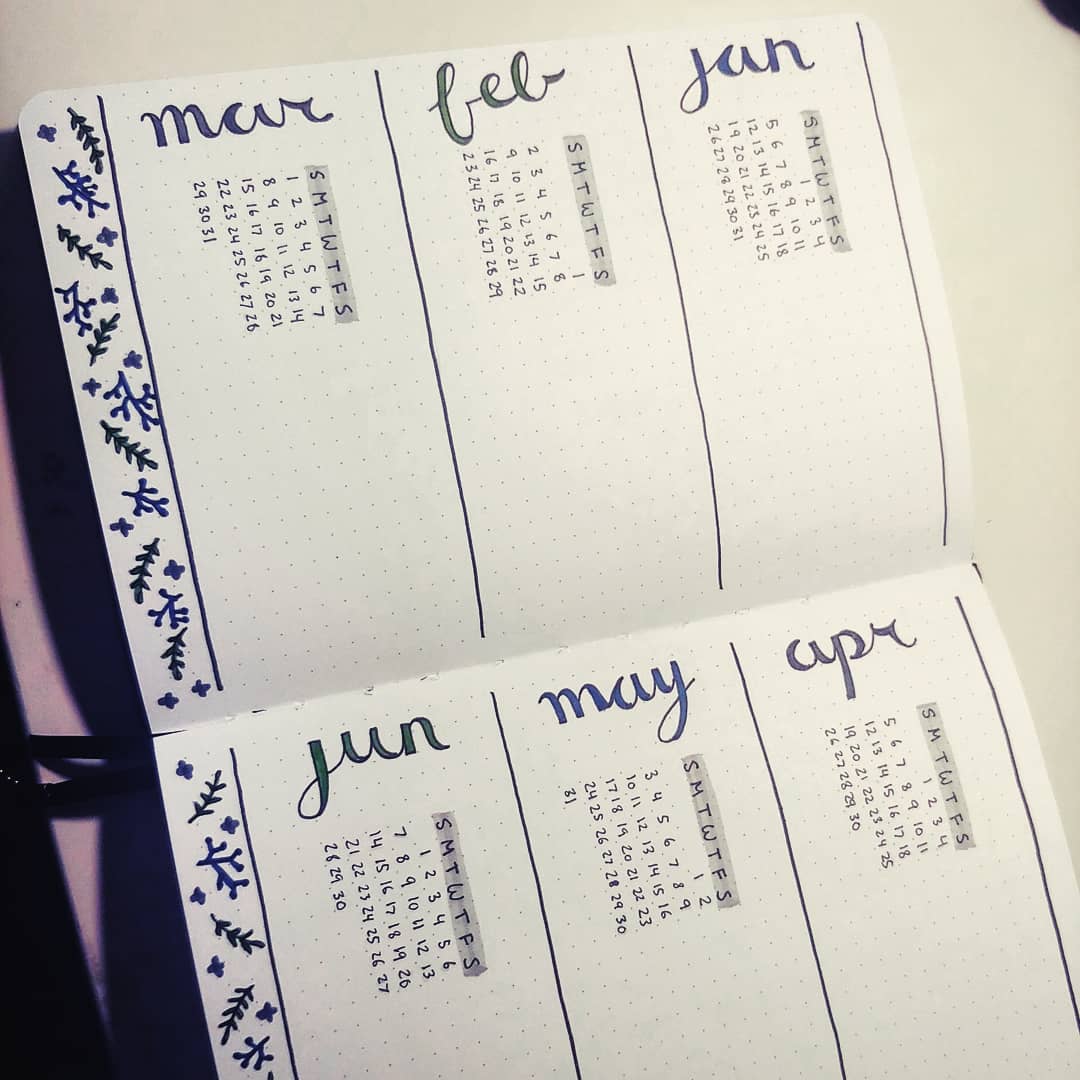 jan
S M T W T F S
1 2 3 4
5 6 7 8 9 10 11
12 13 14 15 16 17 18
19 20 21 22 23 24 25
26 27 28 29 30 31
feb
S M T W T F S
1
2 3 4 5 6 7 8
9 10 11 12 13 14 15
16 17 18 19 20 21 22
23 24 25 26 27 28 29
mar
S M T W T F S
1 2 3 4 5 6 7
8 9 10 11 12 13 14
15 16 17 18 19 20 21
22 23 24 25 26 27 28
29 30 31
apr
S M T W T F S
1 2 3 4
5 6 7 8 9 10 11
12 13 14 15 16 17 18
19 20 21 22 23 24 25
26 27 28 29 30
may
S M T W T F S
1 2
3 4 5 6 7 8 9
10 11 12 13 14 15 16
17 18 19 20 21 22 23
24 25 26 27 28 29 30
31
jun
S M T W T F S
1 2 3 4 5 6
7 8 9 10 11 12 13
14 15 16 17 18 19 20
21 22 23 24 25 26 27
28 29 30